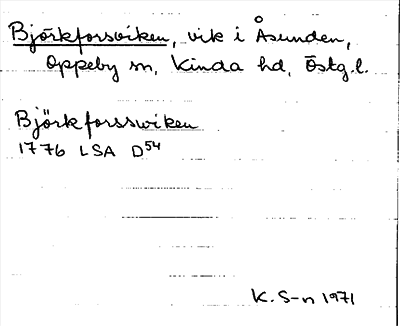 Björkforsviken, vik i Åsunden,
Oppeby sn, Kinda hd, Östg.l.
Björkforsswiken
1776 LSA D54
K. S-n 1971